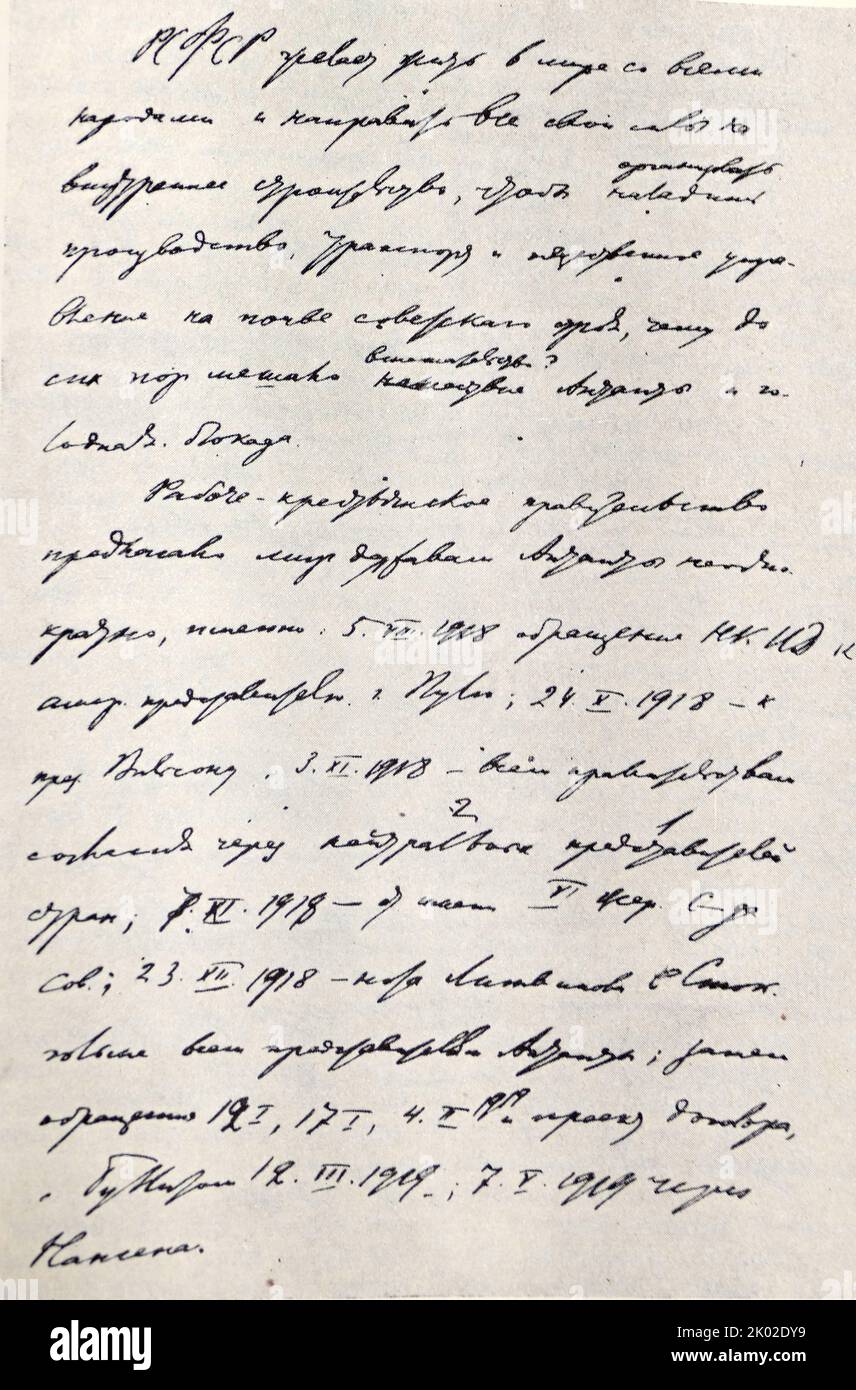 РСФСР желает жить в мире со всеми
народами и направить все свои силы на
организовать
внутреннее строительство, чтобы наладить
производство, транспорт и общественное управ-
вление на почве советского строя, чему до
вмешательство?
сих пор мешало нашествие Антанты и го-
лодная блокада.
Рабоче-крестьянское правительство
предлагало мир державам Антанты неодно-
кратно, именно: 5.VIII.1918 обращение НК. ИД к
амер. представителю г. Пулю; 24.X.1918 — к
през. Вильсону; 3.XI.1918 — всем правительствам
2 1
согласия через нейтральных представителей
стран; 7.XI.1918 — от имени VI Всер. С-да
Сов.; 23.XII.1918 — нота Литвинова в Сток-
гольме всем представителям Антанты; затем
обращения 12 I, 17 I, 4. II 1919 и проект договора,
с Буллитом 12.III.1919.; 7.V.1919 через
Нансена.
alamy
Image ID: 2K02DY9
www.alamy.com